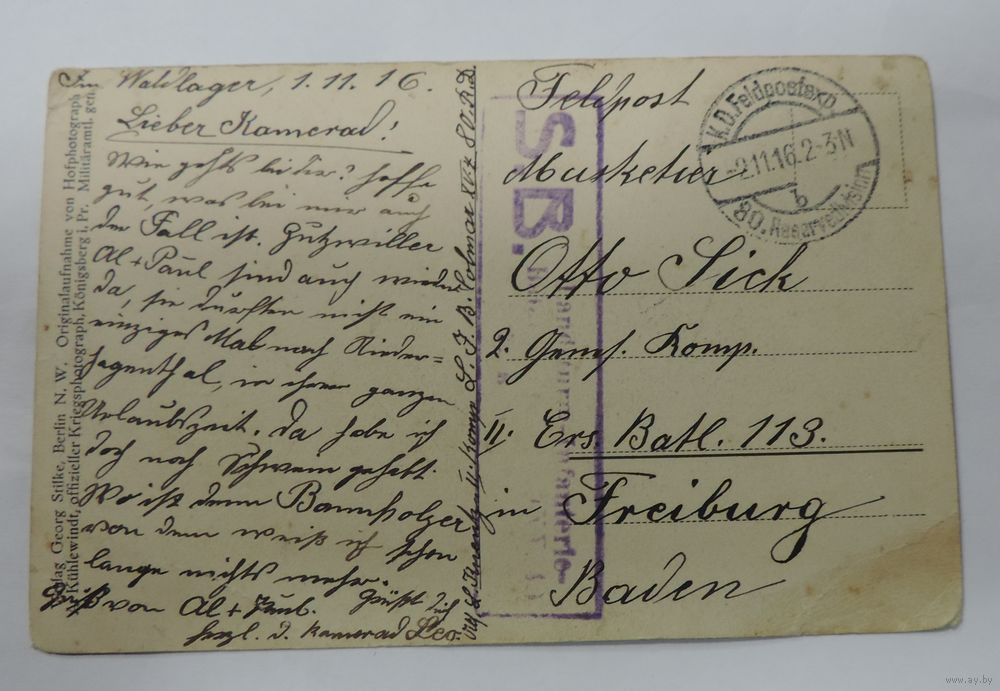 Im Waldlager, 1.11.16.
Lieber Kamerad!
Wie gehts bei dir? hoffe
gut, was bei mir auch
der Fall ist. Gutzwiller
Al + Paul sind auch wieder
da, sie durften nicht ein
einziges Mal nach Nieder=
hagenthal, in ihrer ganzen
Urlaubszeit. Da habe ich
doch noch Schwein gehabt.
Wo ist denn Bannholzer
von dem weiß ich schon
lange nichts mehr.
Gruß von Al + Paul. Grüßt dich
herzl. d. Kamerad Leo.
Komp. L. J. B. Colmar 80. R. D.
Verlag Georg Stilke, Berlin N. W. Originalaufnahme von Hofphotograph
Kühlewindt, offizieller Kriegsphotograph, Königsberg i. Pr. Militäramtl. gen.
Feldpost
K.D. Feldpostexp.
-2.11.16. 2-3N
b
80. Reservedivision
S.B.
Musketier
Otto Sick
2. Genes. Komp.
II. Ers. Batl. 113.
in Freiburg
Baden
www.ay.by